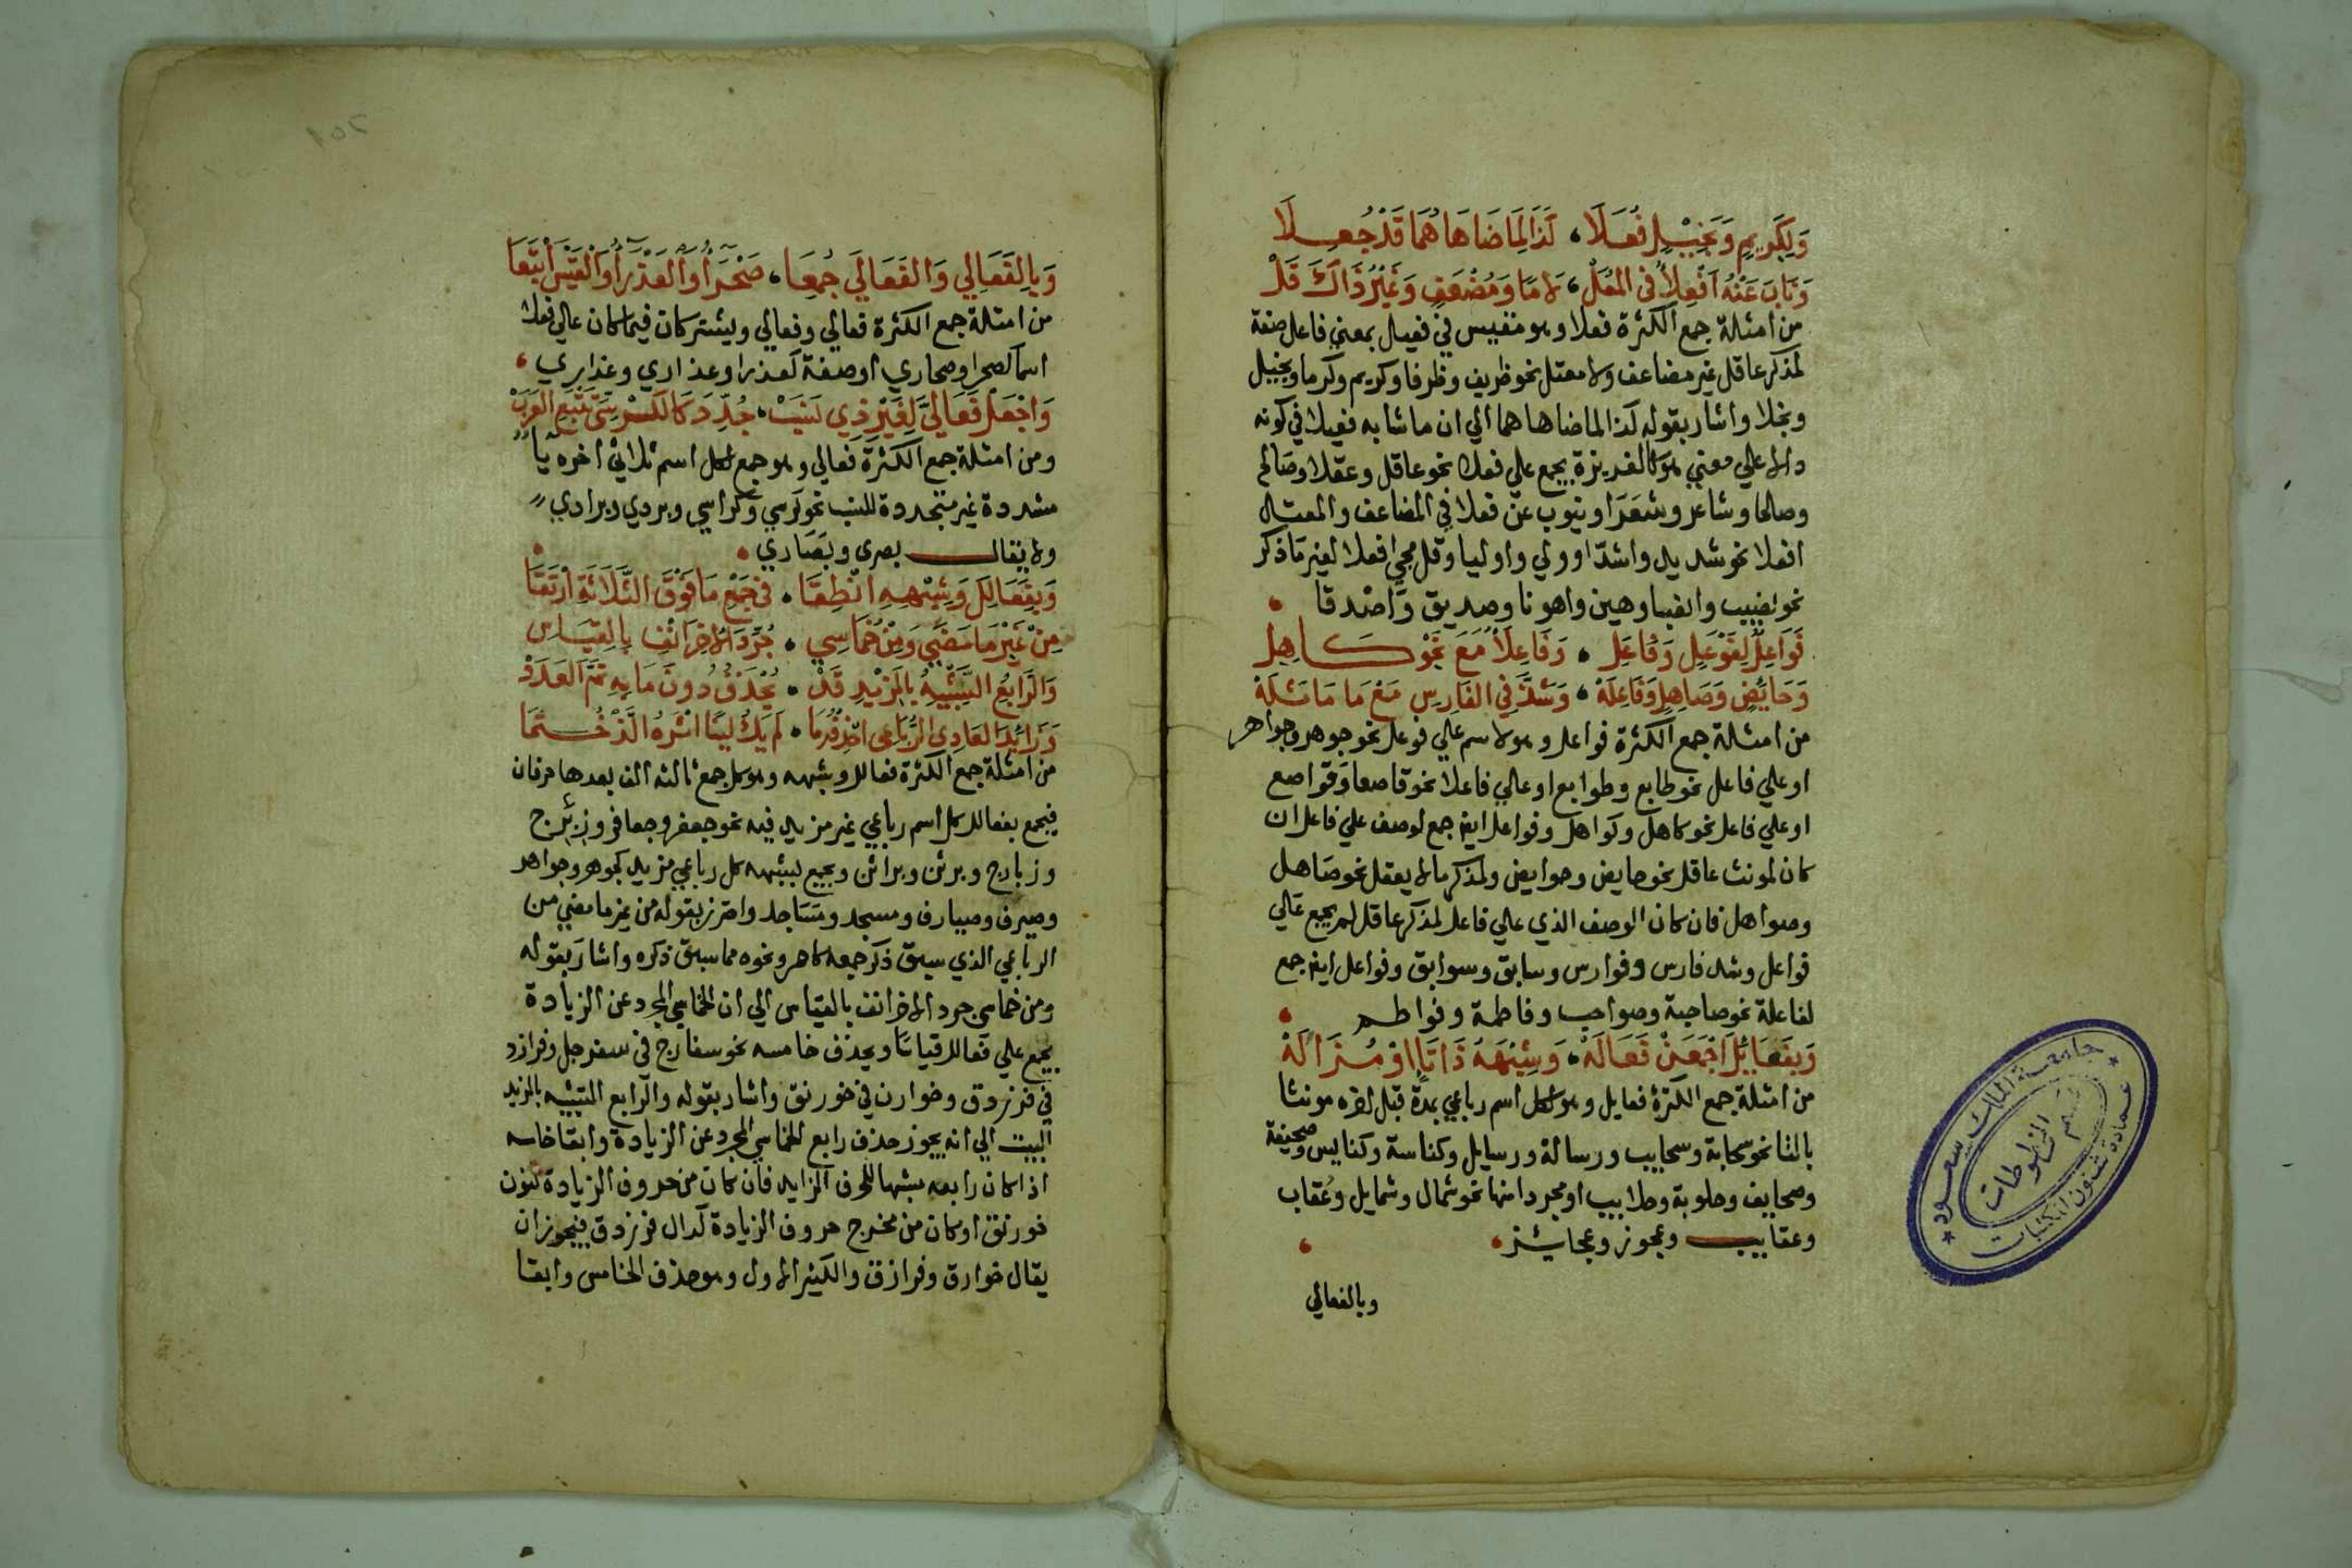 وَلِكَرِيمٍ وَبَخِيْلٍ فُعَلَا، كَذَا لِمَا ضَاهَاهُمَا قَدْ جُعِلَا
وَنَابَ عَنْهُ اَفْعِلاُ في المُعَلْ، لا مًا وَمُضْعَفٍ وَغَيْرُ ذَاكَ قَلْ
من امثلة جمع الكثرة فعلا وهو مقيس في فعيل بمعني فاعل صفة
لمذكر عاقل غير مضاعف ولا معتل نحو ظريف وظرفا وكريم وكرما وبخيل
وبخلا واشار بقوله كذا لما ضاهاهما الي ان ما شابه فعيلا في كونه
دالا علي معني هو كالغريزة يجمع علي فعلا نحو عاقل وعقلا وصالح
وصلحا وشاعر وشعَرَا وينوب عن فعلا في المضاعف والمعتل
افعلا نحو شديد واشدّا وولي واوليا وقل مجي افعلا لغير ما ذكر
نحو نصيب وانصبا وهين واهونا وصديق وَاصْدقا
فَوَاعِلٌ لِفَوْعَلٍ وَفَاعَلِ • وَفَاعِلَاُ مَعَ نَحْوِ كَاهِلِ
وَحَائِضٍ وَصَاهِلٍ وَفَاعِلَهْ • وَشَذَّ فِي الفَارِسِ مَعْ مَا مَاثَلَهْ
من امثلة جمع الكثرة فواعل وهو لاسم علي فوعل نحو جوهر وجواهر
او علي فاعل نحو طابع وطوابع او علي فاعلا نحو قاصعا وقواصع
او علي فاعل نحو كاهل وكواهل وفواعل ايض جمع لوصف علي فاعل ان
كان لمونث عاقل نحو حايض وحوايض ولمذكر ما لا يعقل نحو صَاهل
وصواهل فان كان الوصف الذي علي فاعل لمذكر عاقل لم يجمع علي
فواعل وشذ فارس وفوارس وسابق وسوابق وفواعل ايض جمع
لفاعلة نحو صاحبة وصواحب وفاطمة وفواطم
وَبِفَعَائِلَ اجْمَعَنْ فَعَالَهْ • وَشِبْهَهُ ذَا تَا اوْ مُزَالَهْ
من امثلة جمع الكثرة فعايل وهو لكل اسم رباعي بمدة قبل اخره مونثا
بالتا نحو سحابة وسحايب ورسالة ورسايل وكناسة وكنايس وصحيفة
وصحايف وحلوبة وحلايب او مجردا منها نحو شمال وشمايل وعُقاب
وعقايب وعجوز وعجايز
وبالفعالي
جامعة الملك سعود
قسم المخطوطات
عمادة شئون المكتبات
وَبِالفَعَالِي وَالفَعَالَي جُمِعَا، صَحْرَاُ وَالعَذْرَاُ وَالقَيْسَ اتْبَعَا
من امثلة جمع الكثرة فعالي وفعالي ويشتركان فيما كان علي فعلا
اسما كصحرا وصحاري او صفة كعذرا وعذاري وعذاري
وَاجْعَلْ فَعَالِيَّ لِغَيْرِ ذِي نَسَبْ • جُدِّدَ كَالكُرْسِيِّ تَتْبَعِ العَرَبْ
ومن امثلة جمع الكثرة فعالي وهو جمع لكل اسم ثلاثي اخره يا
مشددة غير متجددة للنسب نحو كرسي وكراسي وبردي وبرادي
ولا يقال بصري وبصَاري
وَبِفَعَالِلَ وَشِبْهِهِ انْطِقَا • فِي جَمْعِ مَا فَوْقَ الثَّلَاثَةِ ارْتَقَا
مِنْ غَيْرِ مَا مَضَي وَمِنْ خُمَاسِي • جُرِّدَ الاخِرَ انْفِ بِالقِيَاسِ
وَالرَّابِعُ الشَّبِيْهُ بِالمَزِيْدِ قَدْ • يُحْذَفُ دُونَ مَا بِهِ تَمَّ العَدَدْ
وَزَائِدَ العَادِي الرُّبَاعِي احْذِفْهُ مَا • لَمْ يَكُ لَيْنًا اثْرَهُ الَّذْ خُتِمَا
من امثلة جمع الكثرة فعالل وشبهه وهو كل جمع ثالثه الف بعدها حرفان
فيجمع بفعالل كل اسم رباعي غير مزيد فيه نحو جعفر وجعافر وزبرج
وزبارج وبرثن وبراثن ويجمع بشبهه كل رباعي مزيد كجوهر وجواهر
وصيرف وصيارف ومسجد ومسَاجد واحترز بقوله من غير ما مضي من
الرباعي الذي سبق ذكر جمعه كاحمر ونحوه مما سبق ذكره واشار بقوله
ومن خماسي جرد الاخر انف بالقياس الي ان الخماسي المجرد عن الزيادة
يجمع علي فعالل قياسًا ويحذف خامسه نحو سفارج في سفرجل وفرازد
في فرزدق وخوارن في خورنق واشار بقوله والرابع الشبيه بالمزيد
البيت الي انه يجوز حذف رابع الخماسي المجرد عن الزيادة وابقا خامسه
اذا كان رابعه مشبها للحرف الزايد فان كان من حروف الزيادة كنون
خورنق او كان من مخرج حروف الزيادة كدال فرزدق فيجوز ان
يقال خوارق وفرازق والكثير الاول وهو حذف الخامس وابقا